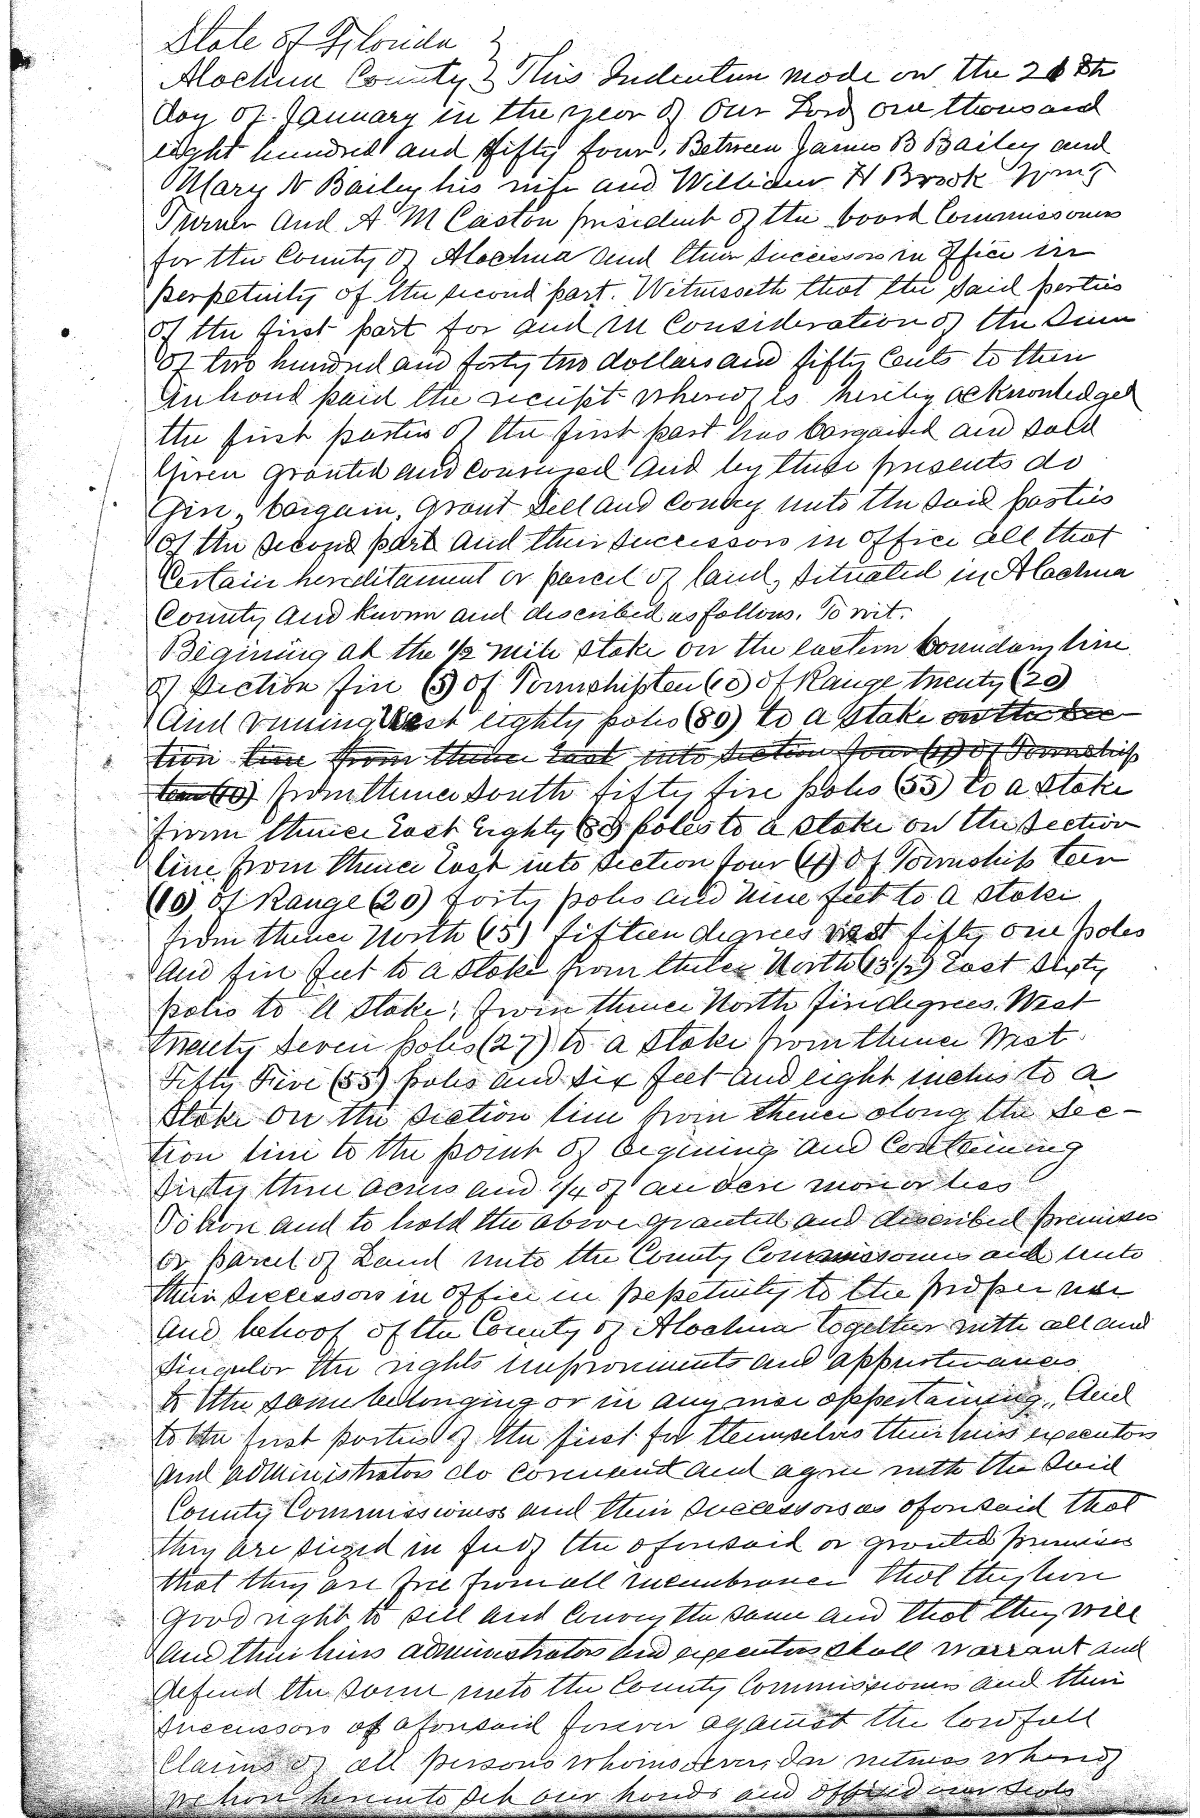 State of Florida }
Alachua County } This Indenture made on the 26th
day of January in the year of Our Lord one thousand
eight hundred and fifty four, Between James B Bailey and
Mary N Bailey his wife and William H Brook Wm S
Turner And A M Caston president of the board Commissoners
for the County of Alachua and their successors in office in
perpetuity of the second part. Witnesseth that the said parties
of the first part for and in Consideration of the Sum
Of two hundred and forty two dollars and fifty Cents to them
in hand paid the receipt whereof is hereby acknowledged
the first parties of the first part has bargained and sold
Given granted and conveyed and by these presents do
Give, bargain, grant Sell and convey unto the said parties
Of the second part and their successors in office all that
Certain hereditament or parcel of land, situated in Alachua
County and known and described as follows. To wit.
Begining at the 1/2 mile stake on the eastern boundary line
of Section five (5) of Township ten (10) of Range twenty (20)
And runing West eighty poles (80) to a stake on the sec-
tion line from thence East into section four (4) of Township
ten (10) from thence South fifty five poles (55) to a stake
from thence East Eighty (80) poles to a stake on the section
line from thence East into section four (4) Of Township teen
(10) of Range (20) forty poles and nine feet to a stake
from thence North (15) fifteen degrees west fifty one poles
And five feet to a stake from thence North (3 1/2) East sixty
poles to a stake; from thence North five degrees West
twenty seven poles (27) to a stake from thence West
Fifty Five (55) poles and six feet and eight inches to a
Stake on the section line from thence along the sec-
tion line to the point of begining and Containing
sixty three acres and 1/4 of an acre more or less
To have and to hold the above granted and described premises
or parcel of Land unto the County Commissoners and unto
their successors in office in pepetuity to the proper use
and behoof of the County of Alachua together with all and
singular the rights improvements and appurtenances
to the same belonging or in any wise appertaining, And
to the first parties of the first for themselves their heirs executors
and administrators do covenant and agree with the said
County Commissioners and their successors as aforesaid that
they are siezed in fee of the aforesaid or granted premises
that they are free from all incumbrance that they have
good right to sell and convey the same and that they will
and their heirs administrators and executors shall warrant and
defend the same unto the County Commissioners and their
successors as aforesaid forever against the lawfull
Claims of all persons whomsoever, In witness whereof
we have hereunto set our hands and affixed our seals